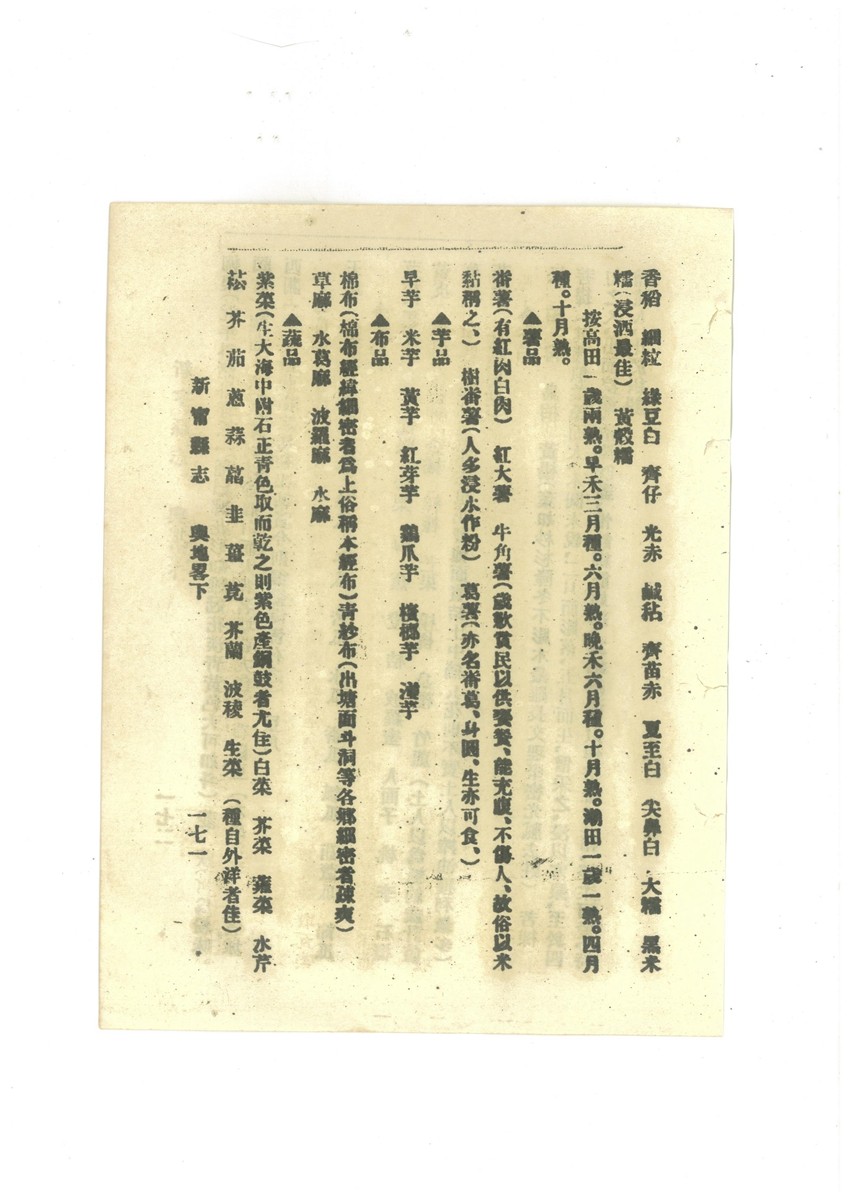 香秈　細粒　綠豆白　齊仔　光赤　鹹秥　齊苗赤　夏至白　尖鼻白　大糯　黑米
糯（浸酒最佳）　黃殼糯
按高田一歲兩熟。早禾三月種。六月熟。晚禾六月種。十月熟。潮田一歲一熟。四月
種。十月熟。
▲薯品
番薯（有紅肉白肉）　紅大薯　牛角薯（歲歉貧民以供饔餐、能充腹、不傷人、故俗以米
黏稱之、）　樹番薯（人多浸水作粉）　葛薯（亦名番葛、身圓、生亦可食、）
▲芋品
早芋　米芋　黃芋　紅芽芋　鷄爪芋　檳榔芋　芋
▲布品
棉布（棉布經緯細密者爲上俗稱本經布）青紗布（出塘面斗洞等各鄉細密者疎爽）
草麻　水葛麻　波羅麻　水麻
▲蔬品
紫菜（生大海中附石正青色取而乾之則紫色產銅鼓者尤佳）白菜　芥菜　蕹菜　水芹
菾　芥　茄　蔥　蒜　萵　韭　薑　莧　芥蘭　波稜　生菜　（種自外洋者佳）
新甯縣志　輿地畧下　一七一